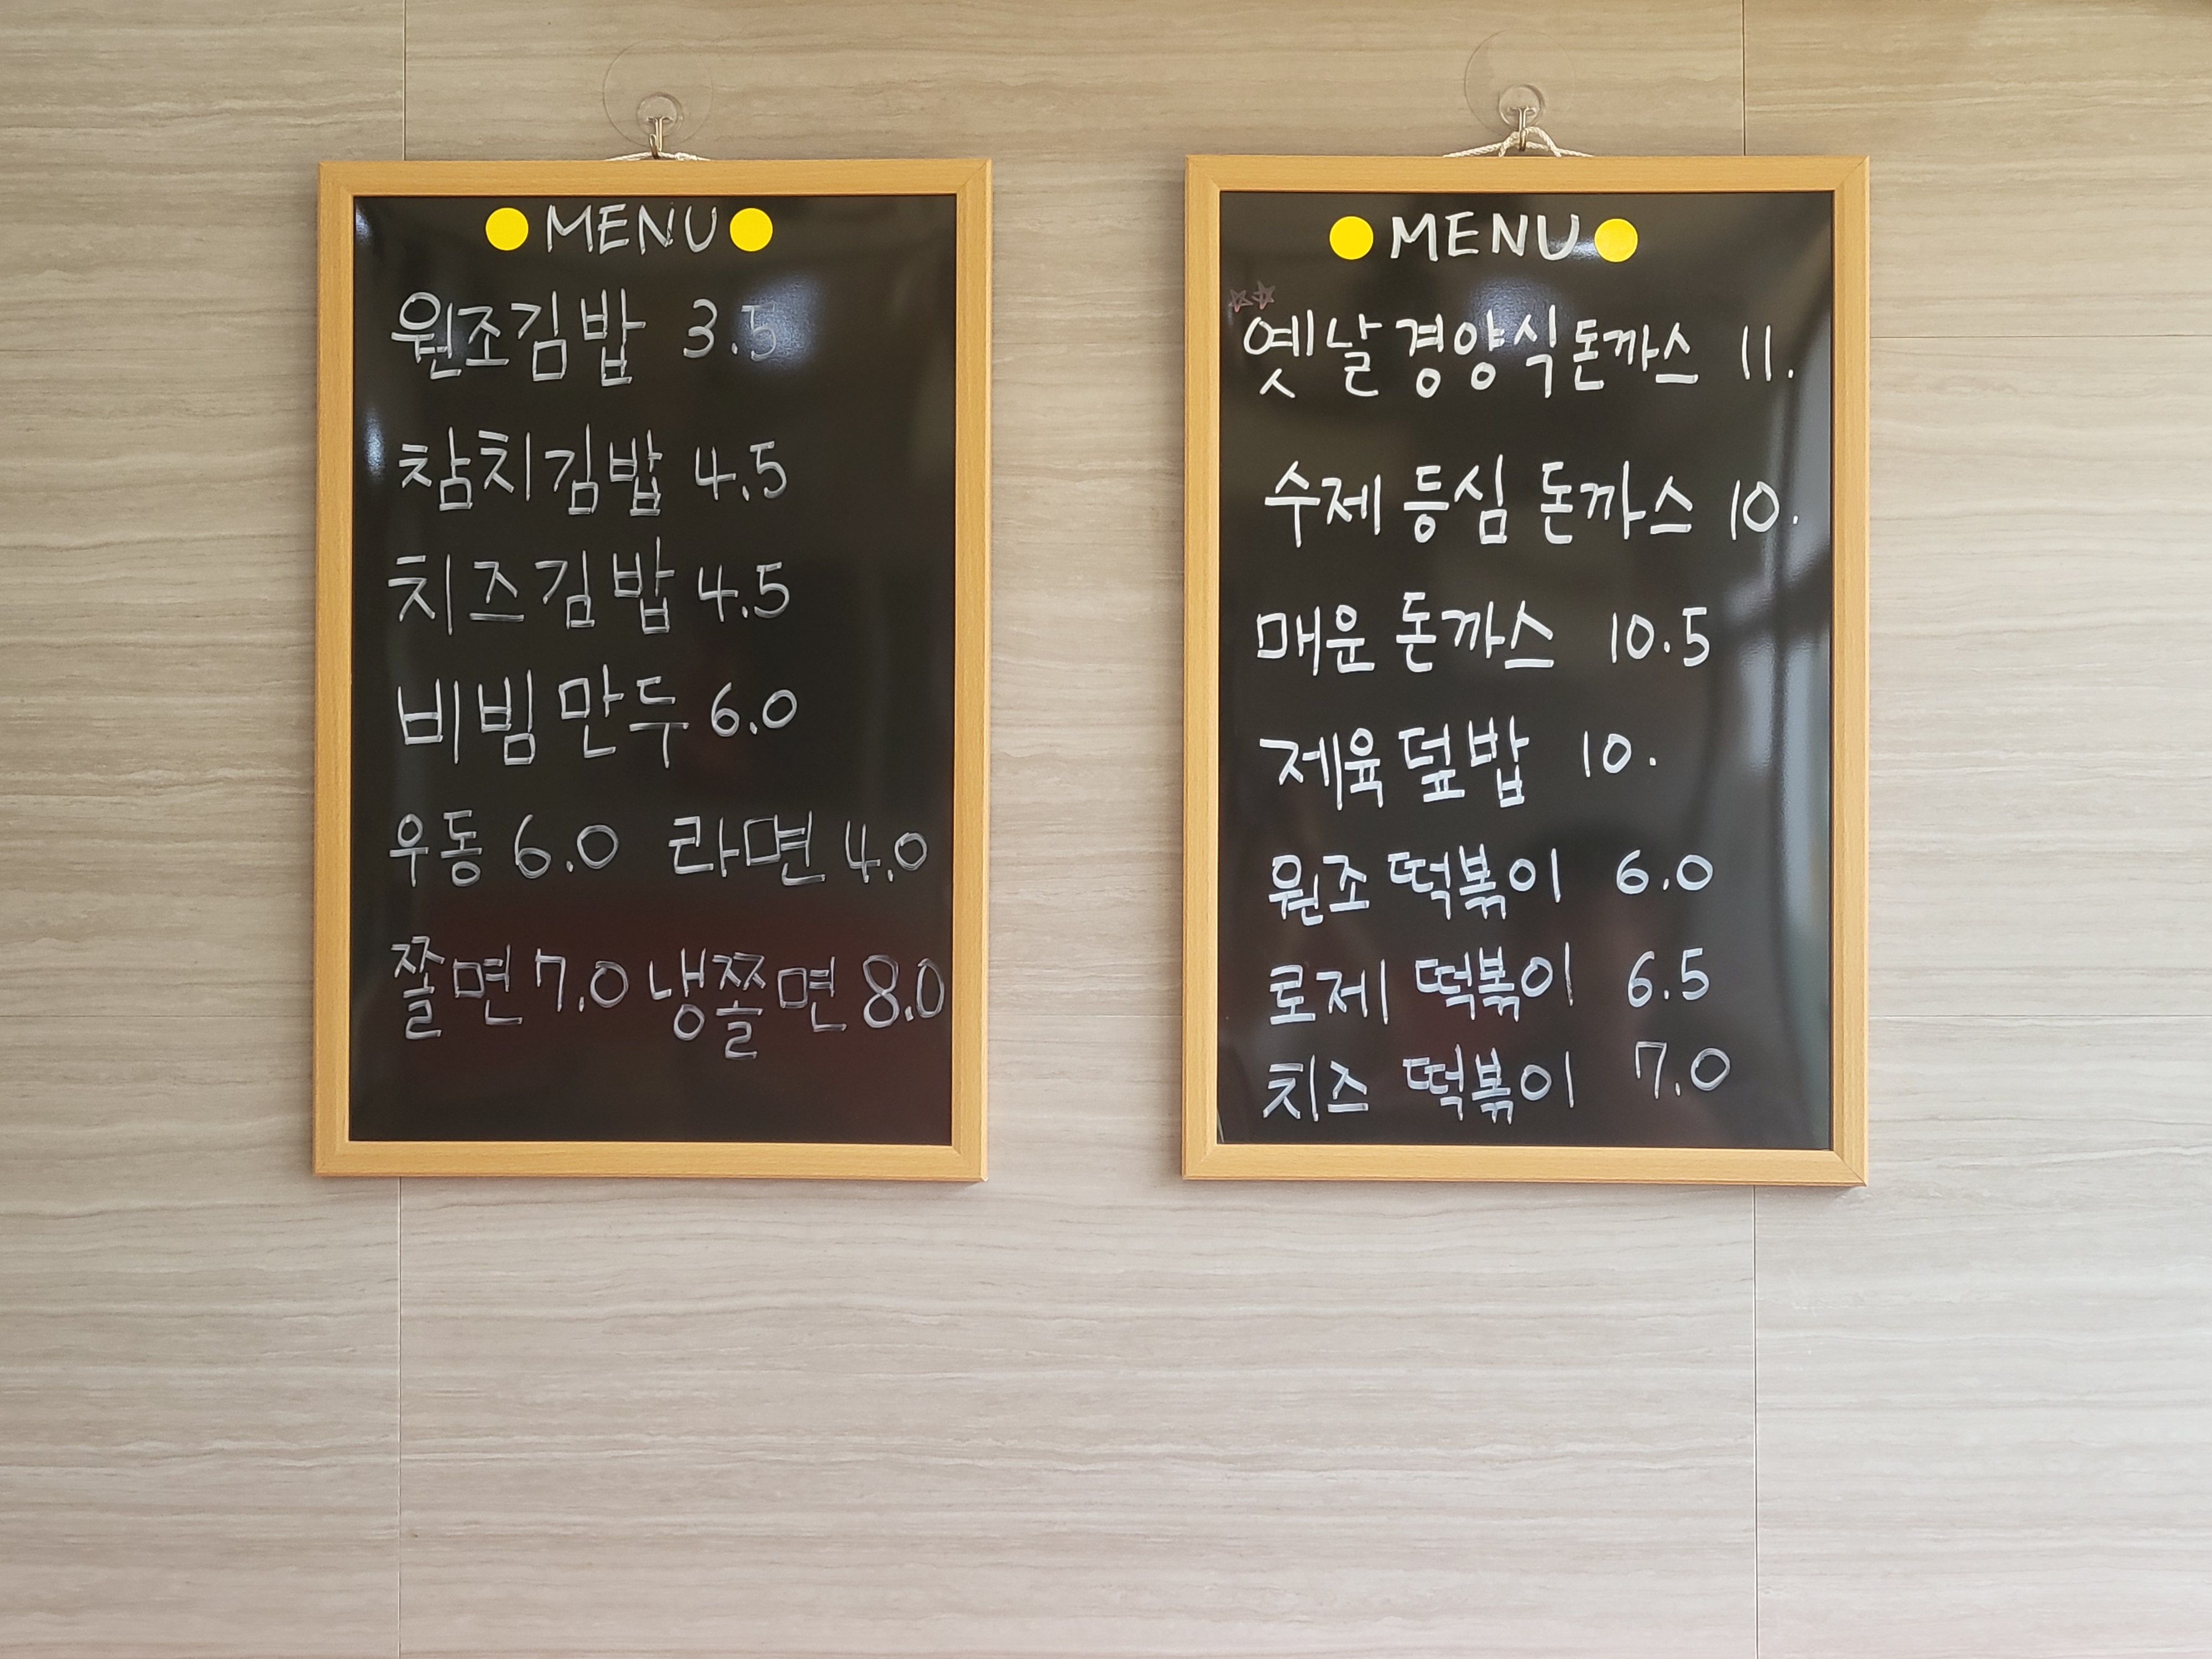 MENU
원조김밥 3.5
참치김밥 4.5
치즈김밥 4.5
비빔만두 6.0
우동 6.0 라면 4.0
쫄면 7.0 냉쫄면 8.0
MENU
옛날경양식돈까스 11.
수제 등심 돈까스 10.
매운 돈까스 10.5
제육덮밥 10.
원조 떡볶이 6.0
로제 떡볶이 6.5
치즈 떡볶이 7.0